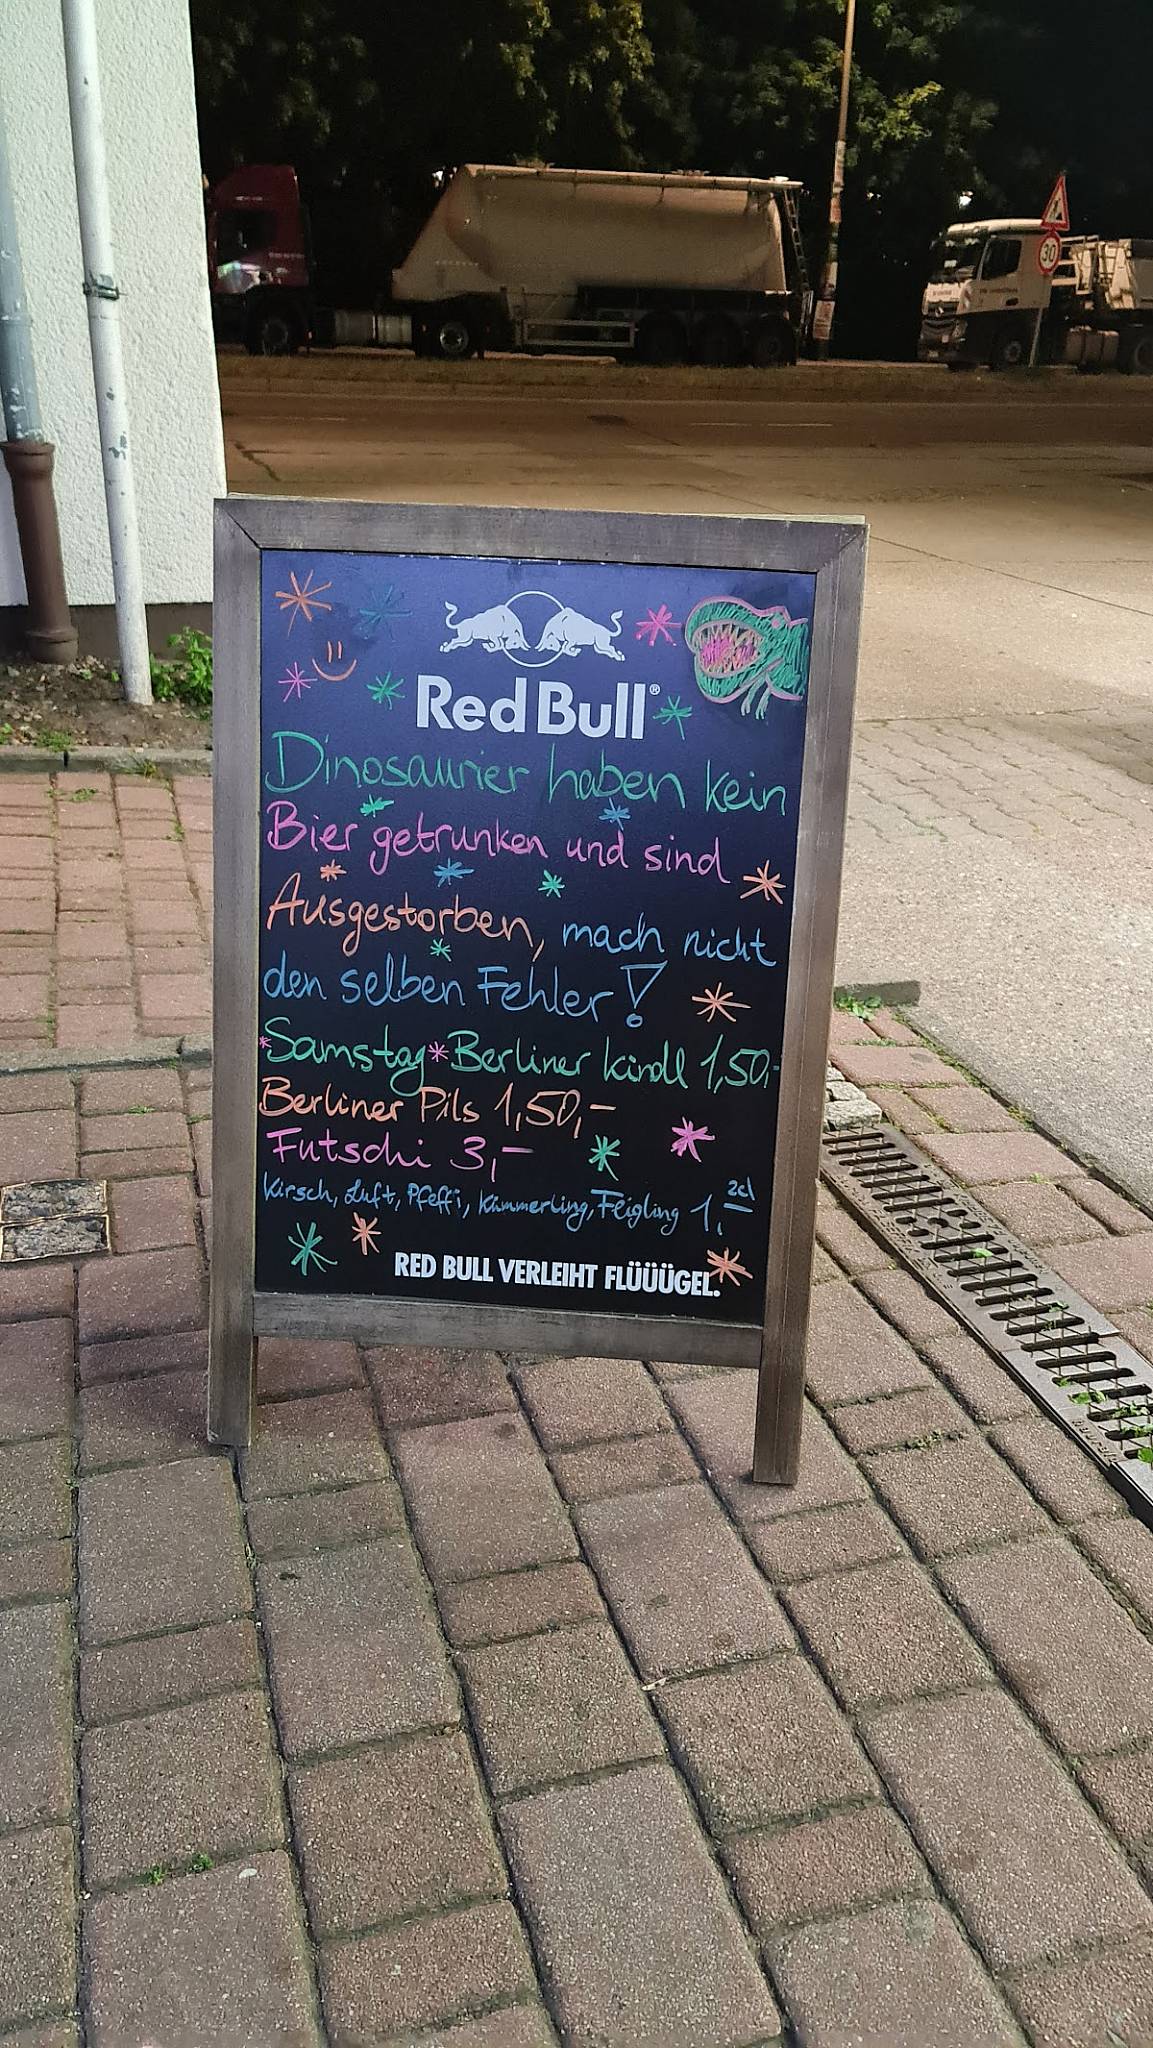 30
Red Bull®
Dinosaurier haben kein
Bier getrunken und sind
Ausgestorben, mach nicht
den selben Fehler!
*Samstag* Berliner kindl 1,50,-
Berliner Pils 1,50,-
Futschi 3,-
Kirsch, Luft, Pfeffi, Kümmerling, Feigling 1,- 2cl
RED BULL VERLEIHT FLÜÜÜGEL.